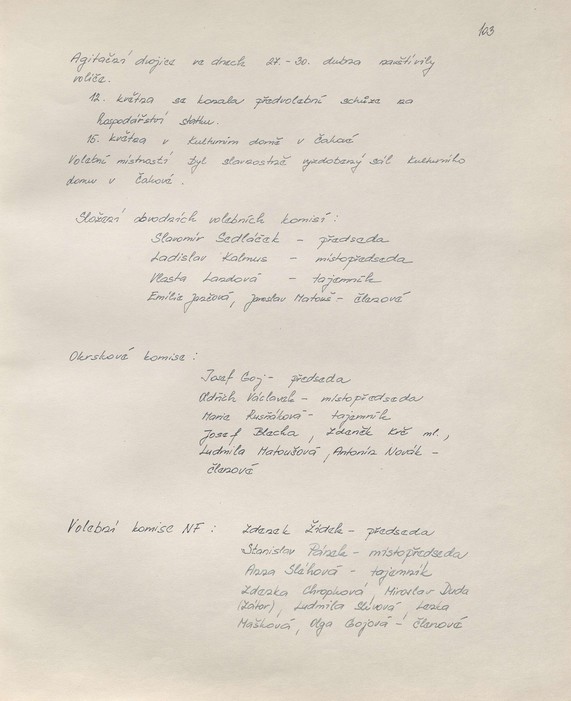 103
Agitační dvojice ve dnech 27. - 30. dubna navštívily
voliče.
12. května se konala předvolební schůze na
hospodářství statku.
15. května v Kulturním domě v Čakové
Volební místností byl slavnostně vyzdobený sál Kulturního
domu v Čakové.
Složení obvodních volebních komisí :
Slavomír Sedláček - předseda
Ladislav Kalmus - místopředseda
Vlasta Landová - tajemník
Emilie , Jaroslav Matouš - členové
Okrskové komise :
Josef Goj - předseda
Oldřich Václavek - místopředseda
Marie Rusňáková - tajemník
Josef Blecha , Zdeněk Krč ml. ,
Ludmila Matoušová , Antonín Novák -
členové
Volební komise NF : Zdenek Žídek - předseda
Stanislav Pánek - místopředseda
Anna Sléhová - tajemník
Zdenka Chropková , Miroslav Duda
(Zátor) , Ludmila Slívová , Lenka
Mašková , Olga Gojová - členové